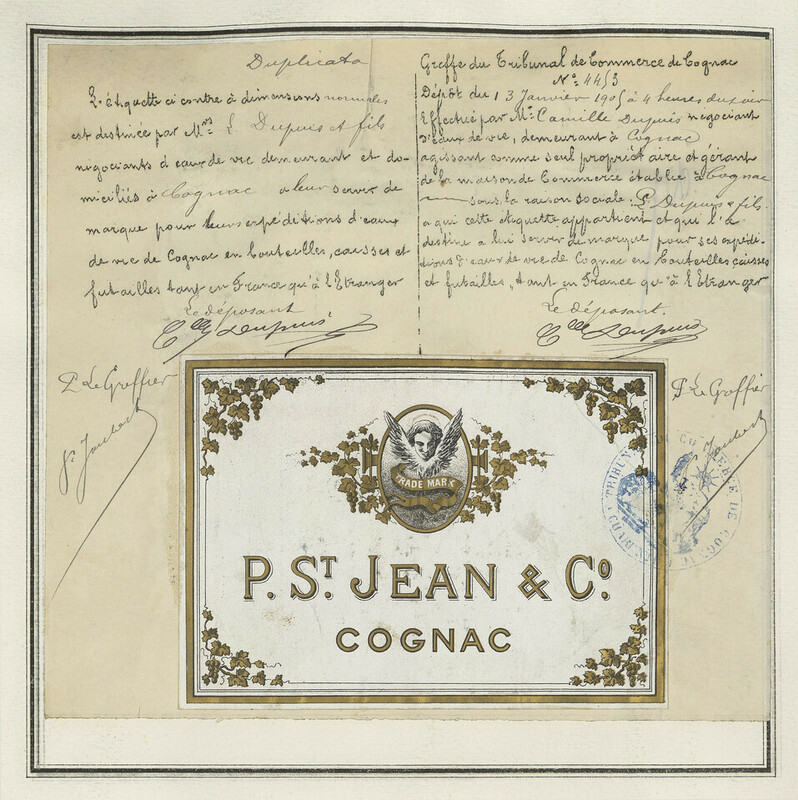 Duplicata
L'étiquette ci contre à dimensions normales
est destinée par Mrs Dupuis et fils
négociants d'eaux de vie demeurant et do-
miciliés à Cognac a leur servir de
marque pour leurs expéditions d'eaux
de vie de Cognac en bouteilles, caisses et
futailles tant en France qu'à l'Etranger
Le déposant
Clle Dupuis
Greffe du Tribunal de Commerce de Cognac
No 4453
Dépôt du 13 Janvier 1905 à 4 heures du soir
Effectué par Mr Camille Dupuis négociant
d'eaux de vie, demeurant à Cognac
agissant comme seul propriétaire et gérant
de la maison de Commerce établie à Cognac
sous la raison sociale: Dupuis & fils
a qui cette étiquette appartient et qui l'a
destine a lui servir de marque pour ses expédi-
tions d'eaux de vie de Cognac en bouteilles caisses
et futailles, tant en France qu'à l'Etranger
Le déposant.
Clle Dupuis
Le Greffier
Le Greffier
TRADE MARK
P. ST. JEAN & Co.
COGNAC